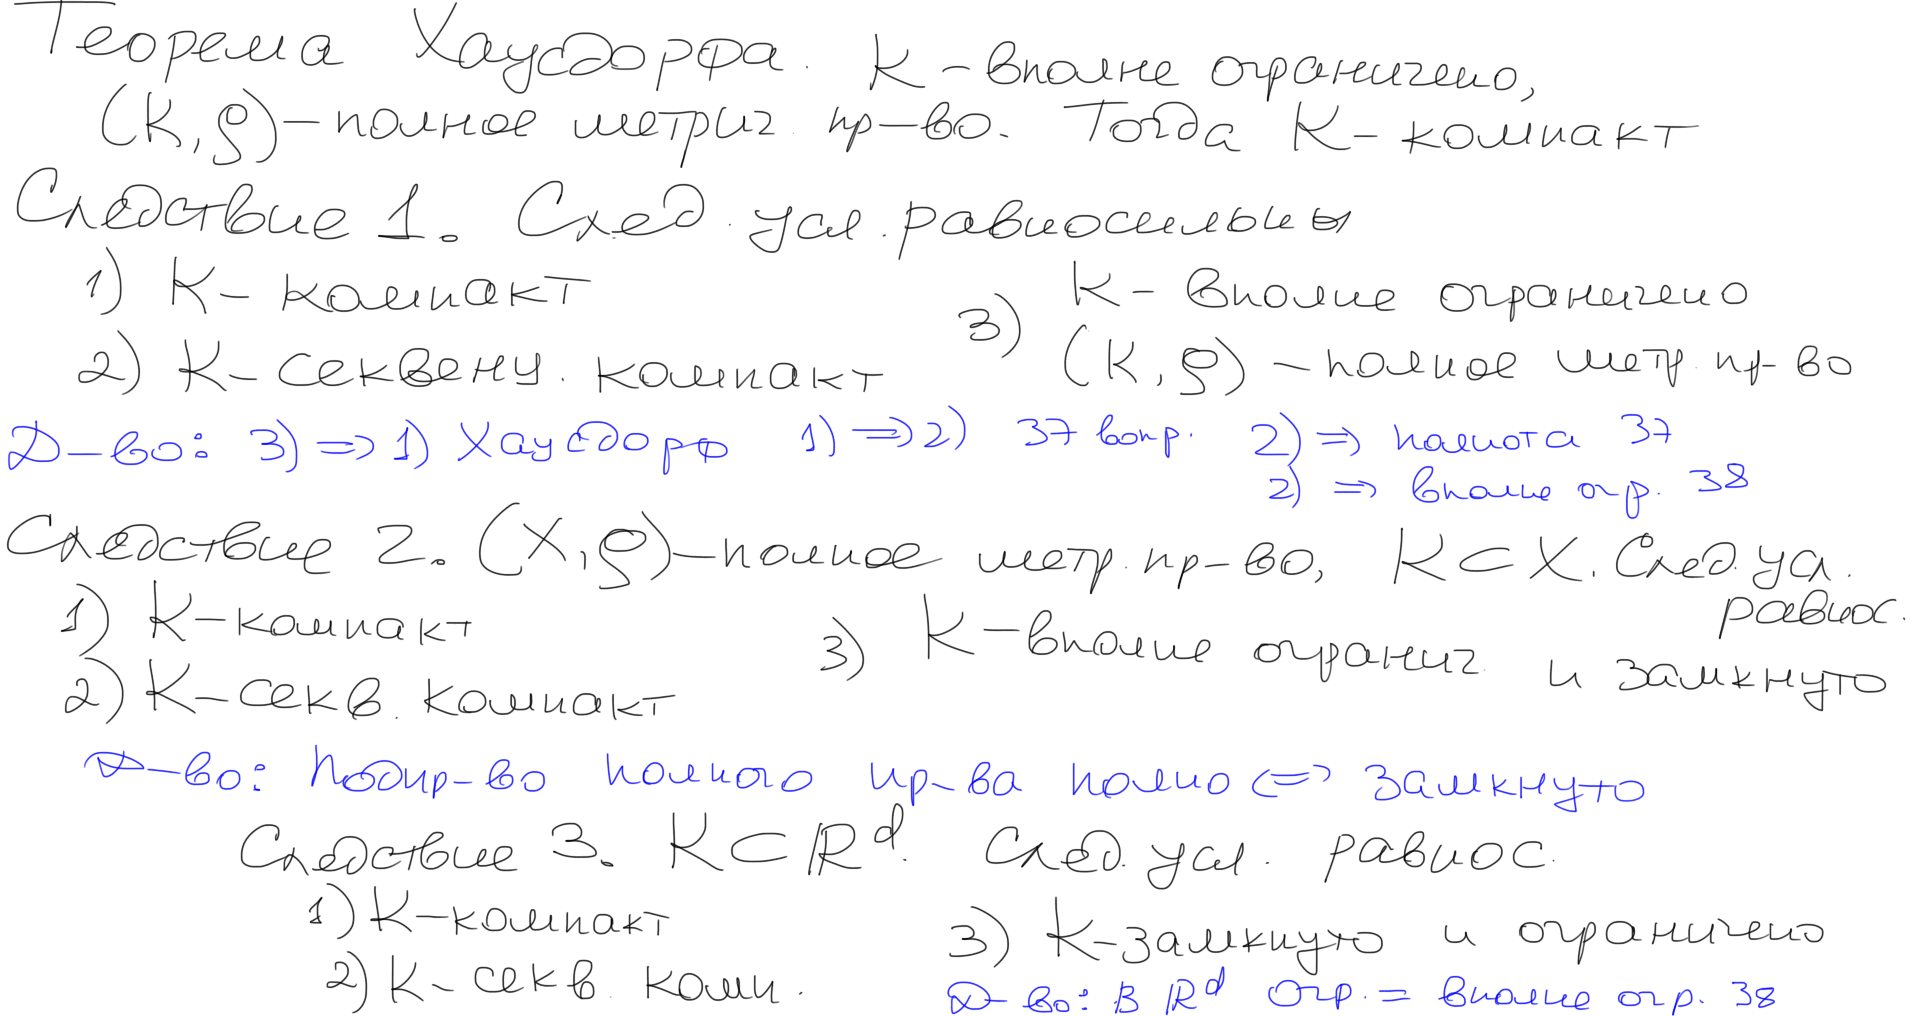 Теорема Хаусдорфа. K – вполне ограничено,
(K, ρ) – полное метрич. пр-во. Тогда K – компакт
Следствие 1. След. усл. равносильны
1) K – компакт
2) K – секвенц. компакт
3) K – вполне ограничено
(K, ρ) – полное метр. пр-во
Д-во: 3) ⇒ 1) Хаусдорф 1) ⇒ 2) 37 вопр. 2) ⇒ полнота 37
2) ⇒ вполне огр. 38
Следствие 2. (X, ρ) – полное метр. пр-во, K ⊂ X. След. усл.
равнос.
1) K – компакт
2) K – секв. компакт
3) K – вполне огранич. и замкнуто
Д-во: Подпр-во полного пр-ва полно ⇔ замкнуто
Следствие 3. K ⊂ ℝᵈ. След. усл. равнос.
1) K – компакт
2) K – секв. комп.
3) K – замкнуто и ограничено
Д-во: В ℝᵈ Огр. = вполне огр. 38